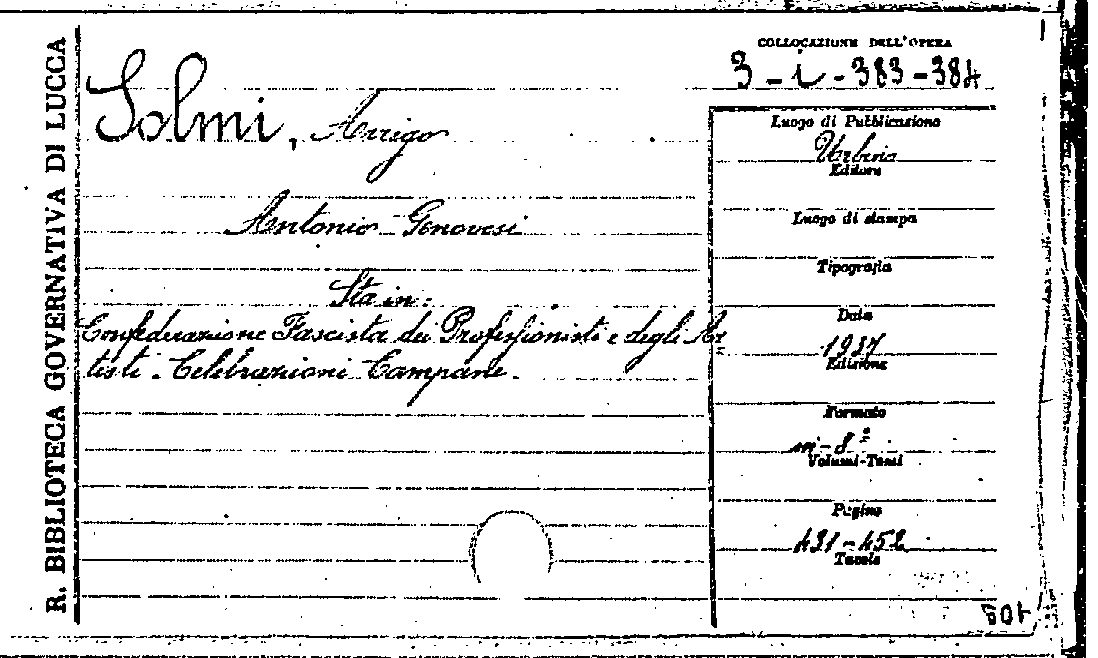 R. BIBLIOTECA GOVERNATIVA DI LUCCA
COLLOCAZIONE DELL'OPERA
3-i-383-384
Solmi, Arrigo
Antonio Genovesi
Sta in:
Confederazione Fascista dei Professionisti e degli Ar=
tisti. Celebrazioni Campane.
Luogo di Pubblicazione
Urbino
Editore
Luogo di stampa
Tipografia
Data
1937
Edizione
Formato
in-8º
Volumi-Tomi
Pagine
431-452
Tavole